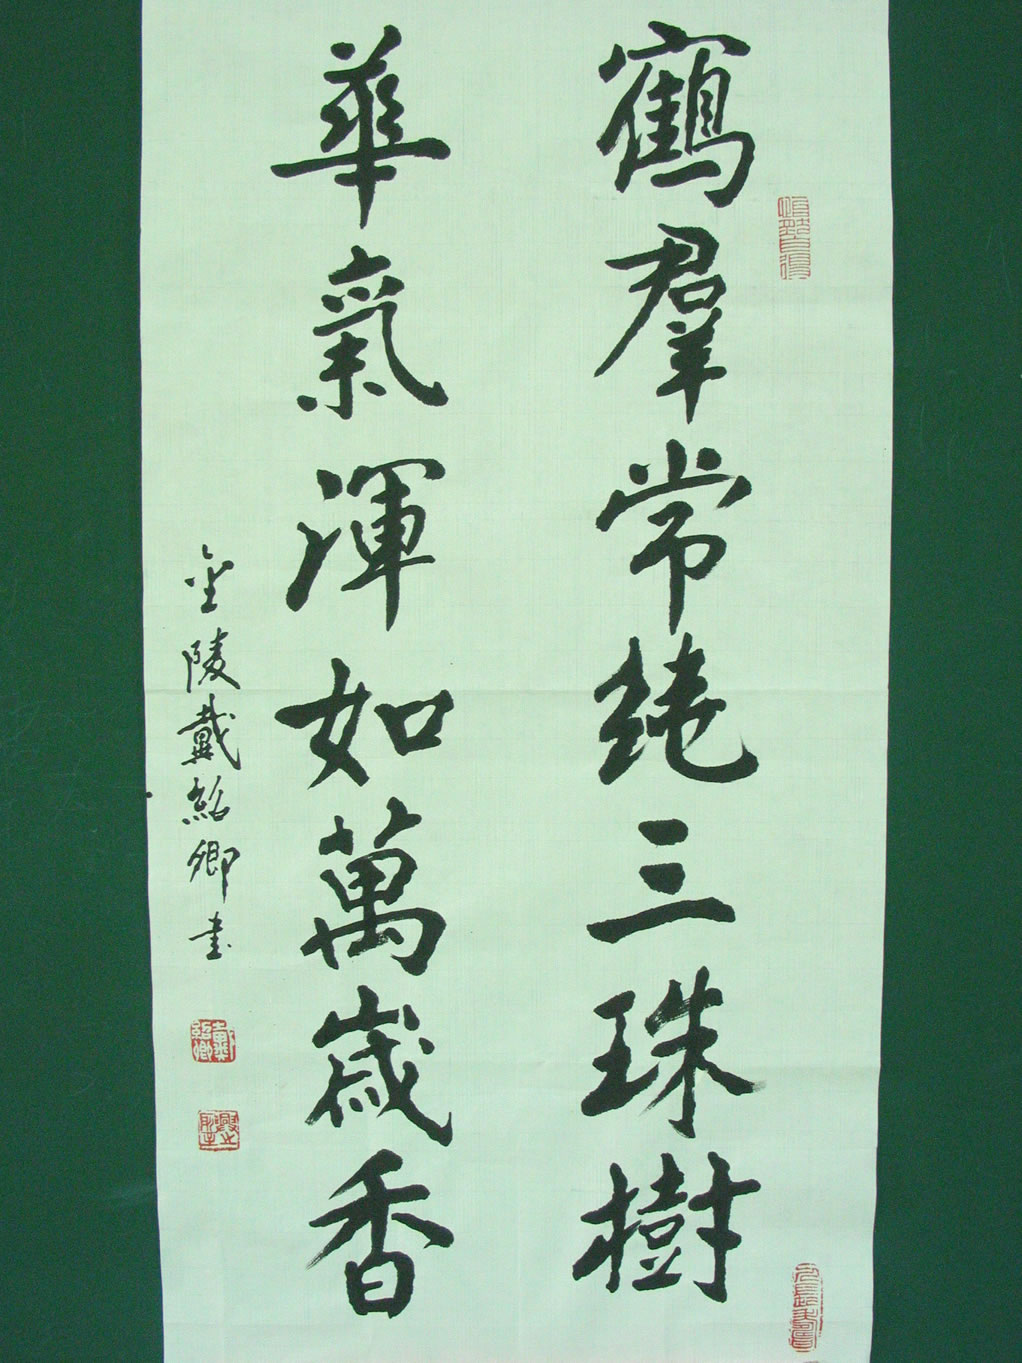 鶴羣常繞三珠樹
華氣渾如萬歲香
金陵戴紹卿書